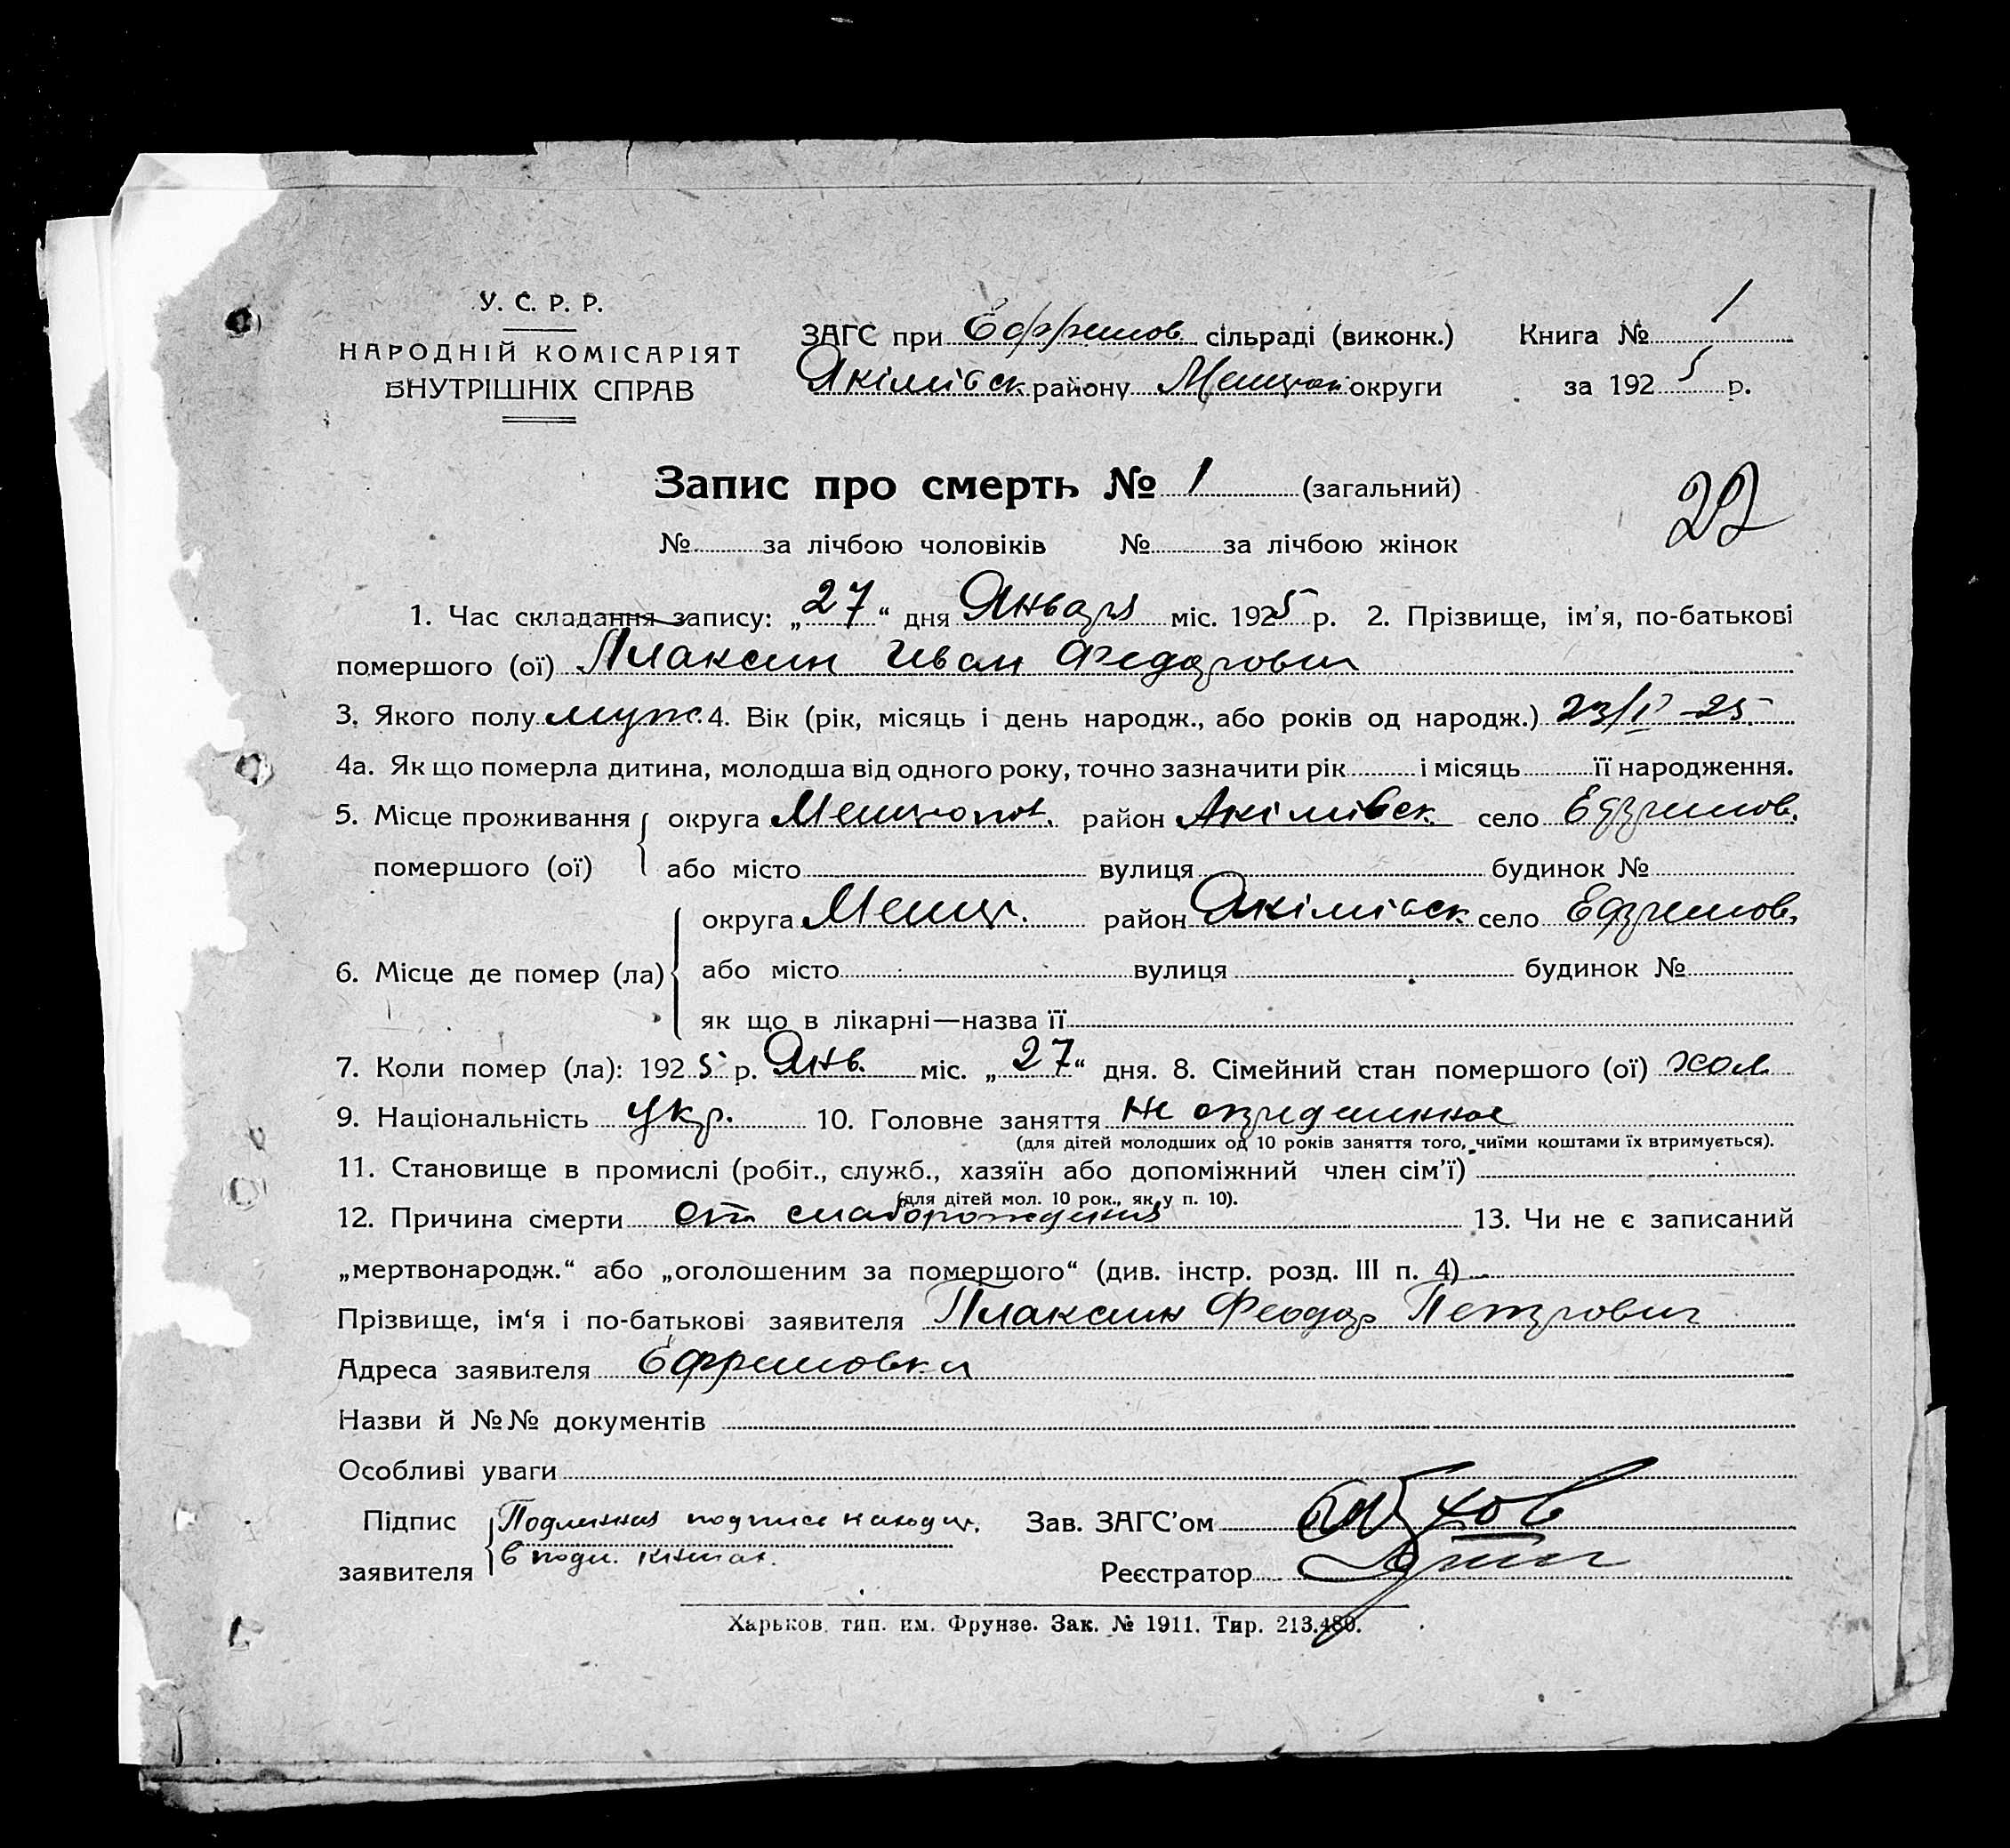 У. С. Р. Р.
НАРОДНІЙ КОМІСАРІЯТ
ВНУТРІШНІХ СПРАВ
ЗАГС при Ефремов. сільраді (виконк.) Книга № 1
Якімівск району округи за 1925 р.
Запис про смерть № 1 (загальний)
22
№ за лічбою чоловіків № за лічбою жінок
1. Час складання запису: „27“ дня Января міс. 1925 р. 2. Прізвище, ім’я, по-батькові
помершого (ої) Плаксин Иван Федорович
3. Якого полу муж. 4. Вік (рік, місяць і день народж., або років од народж.) 23/I-25
4а. Як що померла дитина, молодша від одного року, точно зазначити рік і місяць її народження.
5. Місце проживання округа Мелитопол. район Акімівск. село Ефремов.
помершого (ої) або місто вулиця будинок №
округа Мелит. район Якімівск село Ефремов.
6. Місце де помер (ла) або місто вулиця будинок №
як що в лікарні—назва її
7. Коли помер (ла): 1925 р. Янв. міс. „27“ дня. 8. Сімейний стан помершого (ої) хол.
9. Національність укр. 10. Головне заняття
(для дітей молодших од 10 років заняття того, чиїми коштами їх втримується).
11. Становище в промислі (робіт., служб., хазяїн або допоміжний член сім’ї)
(для дітей мол. 10 рок., як у п. 10).
12. Причина смерти от слаборождения 13. Чи не є записаний
„мертвонародж.“ або „оголошеним за помершого“ (див. інстр. розд. III п. 4)
Прізвище, ім‘я і по-батькові заявителя Плаксин Феодор Петрович
Адреса заявителя Ефремовка
Назви й №№ документів
Особливі уваги
Підпис Подлинная подпись находит. Зав. ЗАГС’ом
заявителя в подл. книгах. Реєстратор
Харьков, тип. им. Фрунзе. Зак. № 1911. Тир. 213.480.